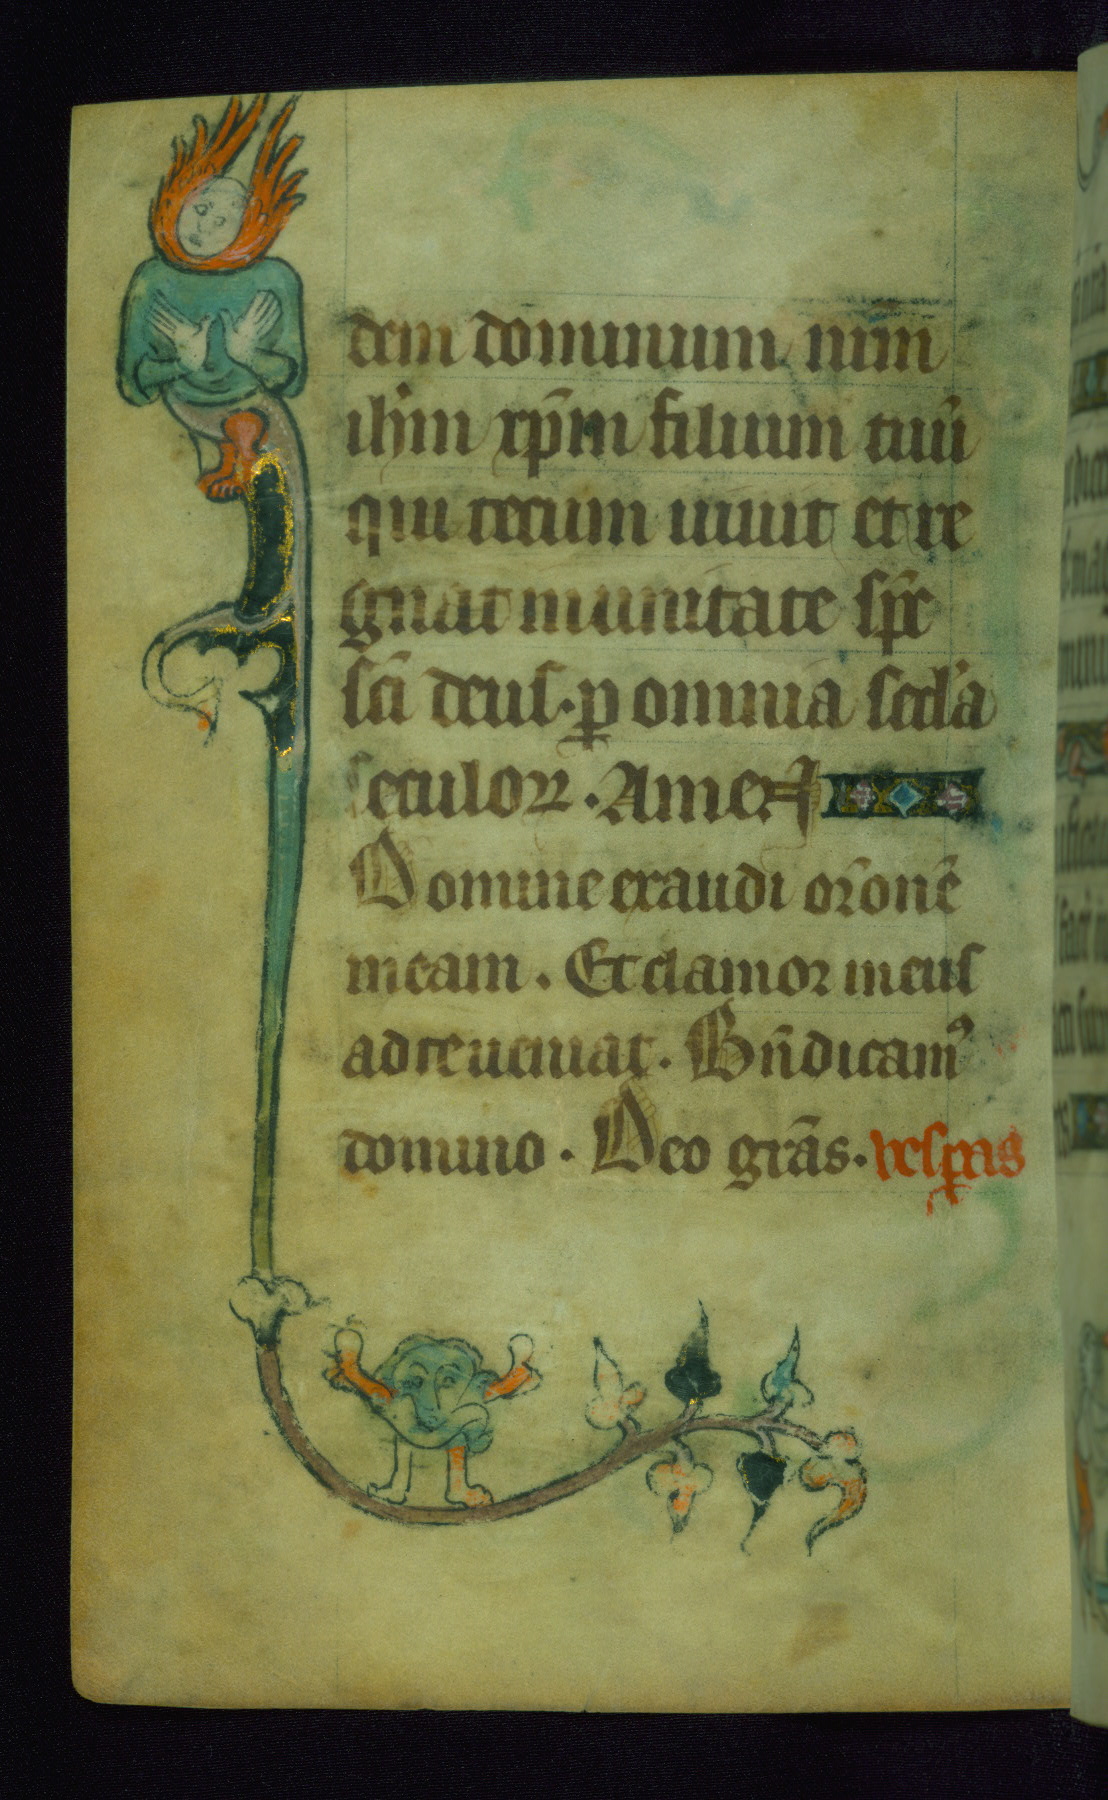 dem dominum nr̄m
ih̄m xp̄m filium tuū
qui tecum uiuit et re
gnat in unitate sp̄c
sc̄i deus · ꝑ omnia sec̄la
seculoꝝ · Amen
Domine exaudi or̄onē
meam · Et clamor meus
ad te ueniat · Bn̄dicamꝰ
domino · Deo grās · vesp̱as